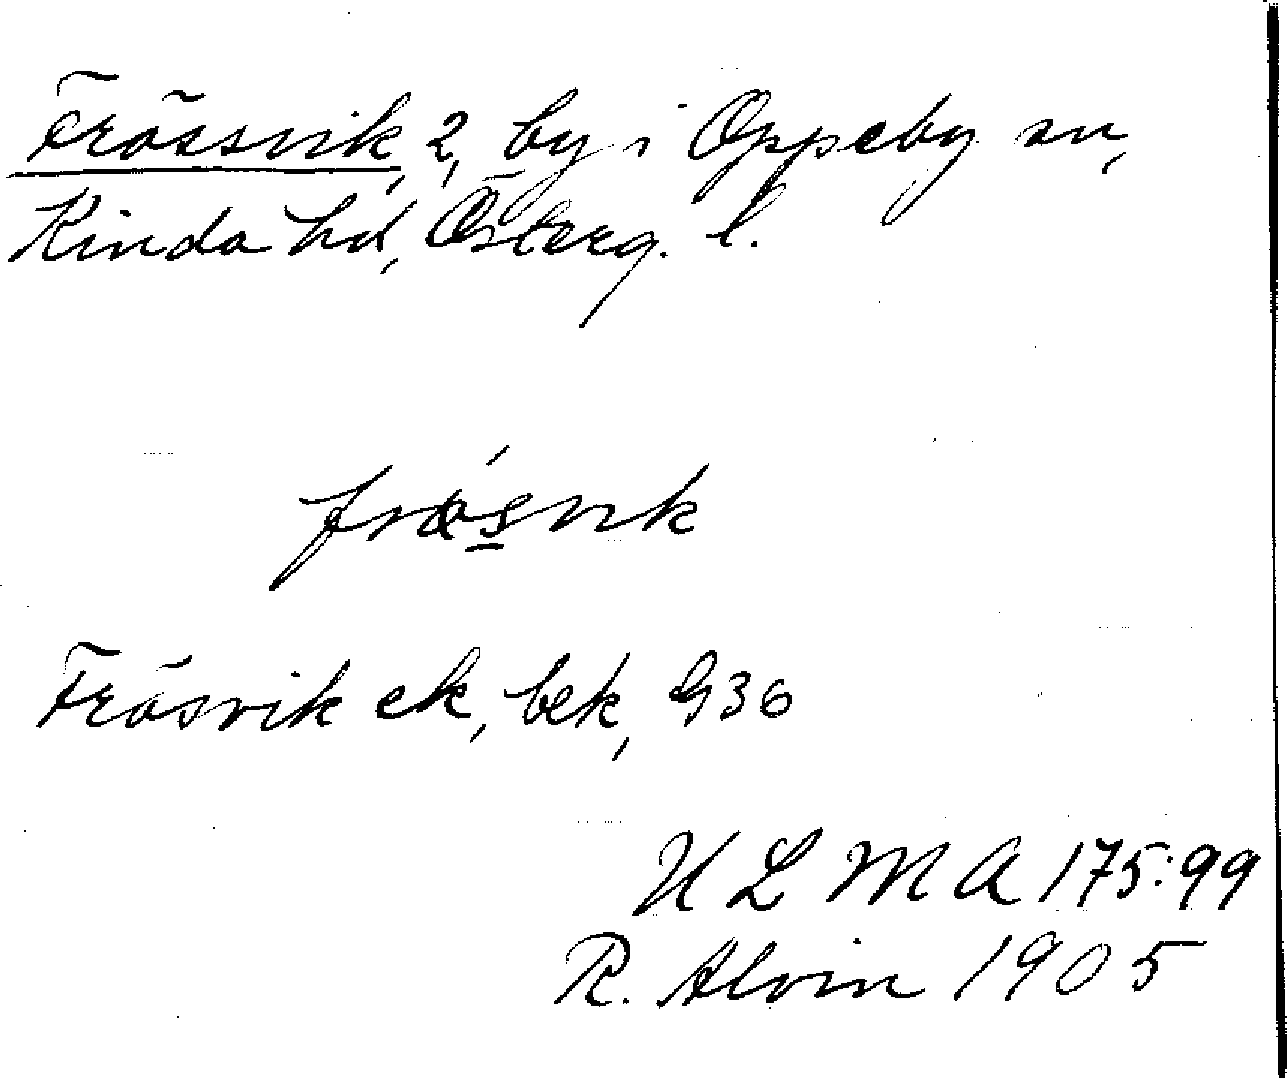 Frössvik, 2, by i Oppeby sn,
Kinda hd, Österg. l.
Frösvik ek, bek, G36
ULMA 175:99
R. Alvin 1905